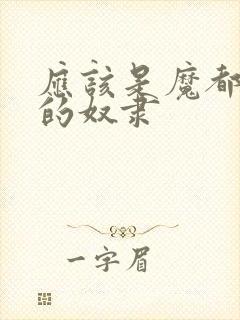 應該是魔都
的奴隶
一字眉